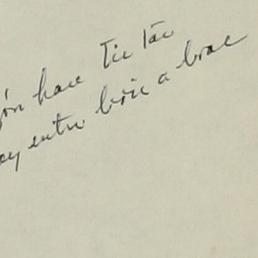 ón hace Tic tác
ey entre bric a brac